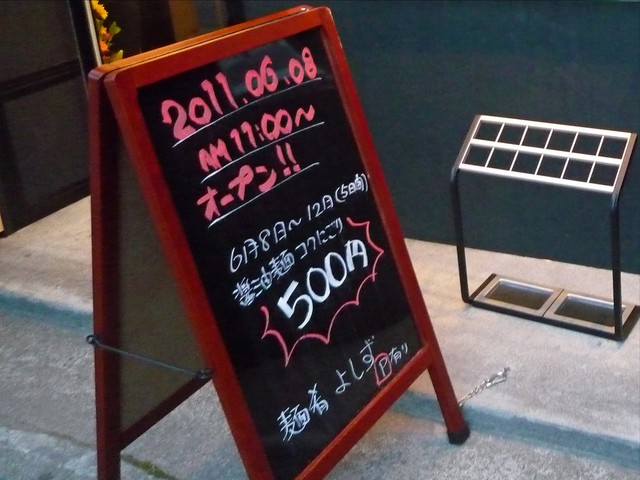 2011.06.08
AM 11:00～
オープン!!
6月8日～12日(5日間)
醤油麺 コクにごり
500円
麺肴 よしず
P有り